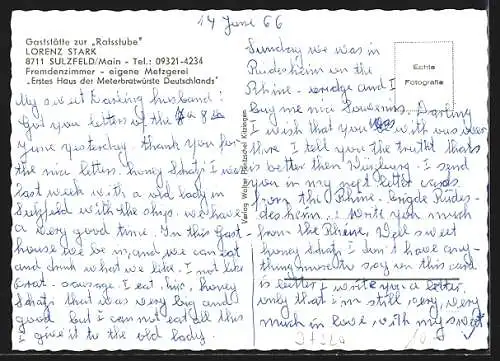 14 June 66
Gaststätte zur „Ratsstube"
LORENZ STARK
8711 SULZFELD/Main - Tel.: 09321-4234
Fremdenzimmer - eigene Metzgerei
„Erstes Haus der Meterbratwürste Deutschlands"
My sweet Darling husband!
Got you letters of the 7 a 8
June yesterday. thank you for
the nice letters. honey Schatzi I was
last week with a old lady in
Sulzfeld with the ship. we have
a very good time. In this Gast-
house we be in, and we can eat
and drink what we like. I not like
Brat-sausage I eat, honey
Schatzi that was very big and
good but I can not eat all this
I give it to the old lady.
Verlag Walter Kitzingen
Echte
Fotografie
Sunday we was in
Rüdesheim on the
Rhine - and I
buy me nice Souvenirs. Darling
I wish that you was with us over
there. I tell you the truth that
is better then Würzburg. I send
you in my next letter cards
from the Rhine - Rüdes-
desheim. I write you much
from the Rhine. Well sweet
honey Schatzi I don't have any-
thing more to say on this card
is better I write you a letter.
only that I'm still very, very
much in love, with my sweet